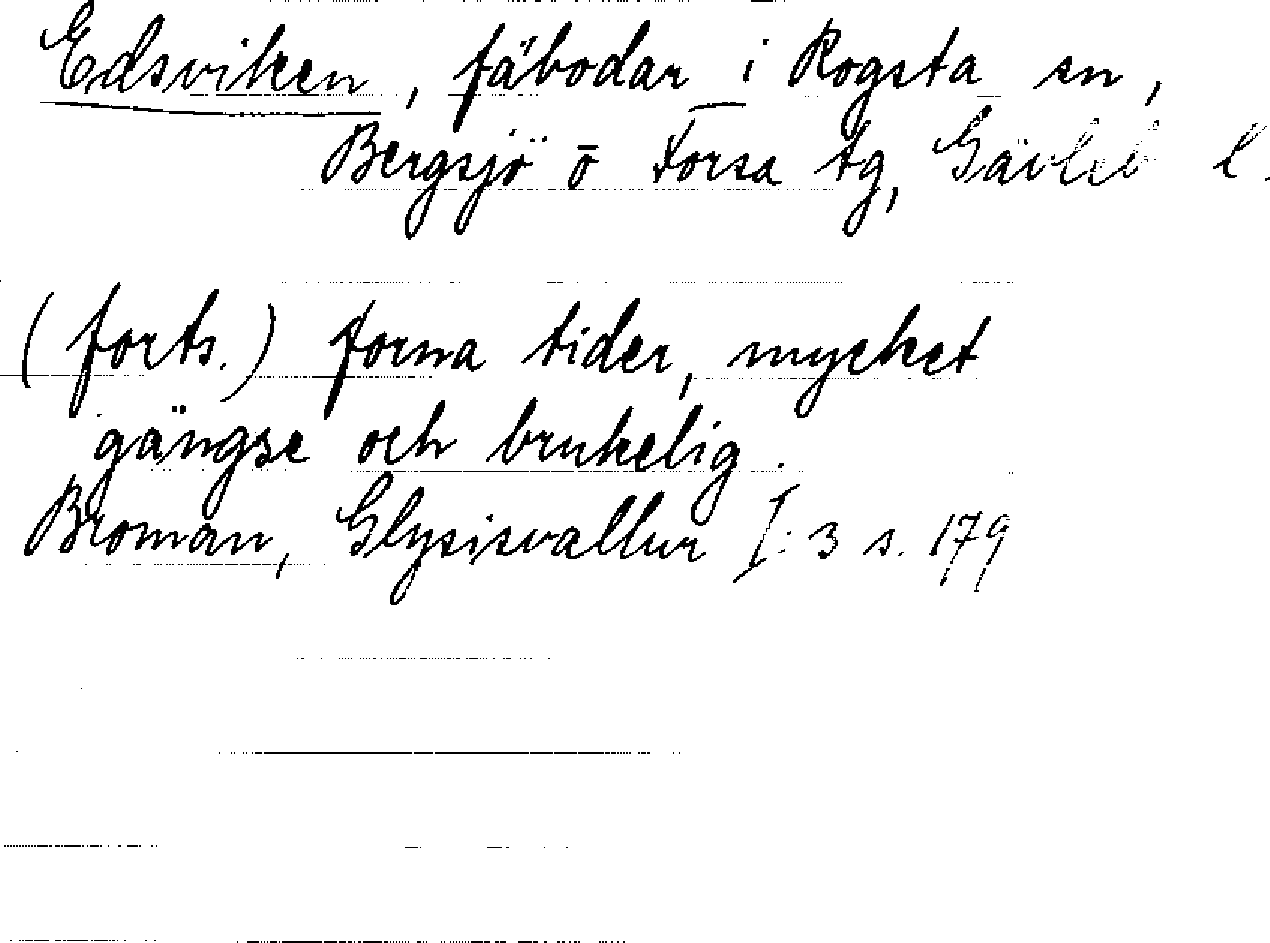 Edsviken, fäbodar i Rogsta sn,
Bergsjö o Forsa tg, Gävleb l.
(forts.) forna tider, mycket
gängse och brukelig.
Broman, Glysisvallur I:3 s. 179